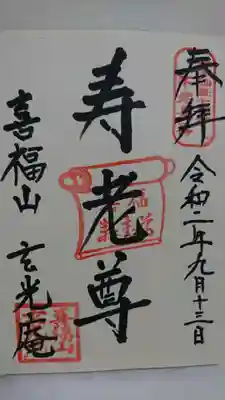 奉拝
令和二年九月十三日
寿老尊
喜福山 玄光庵